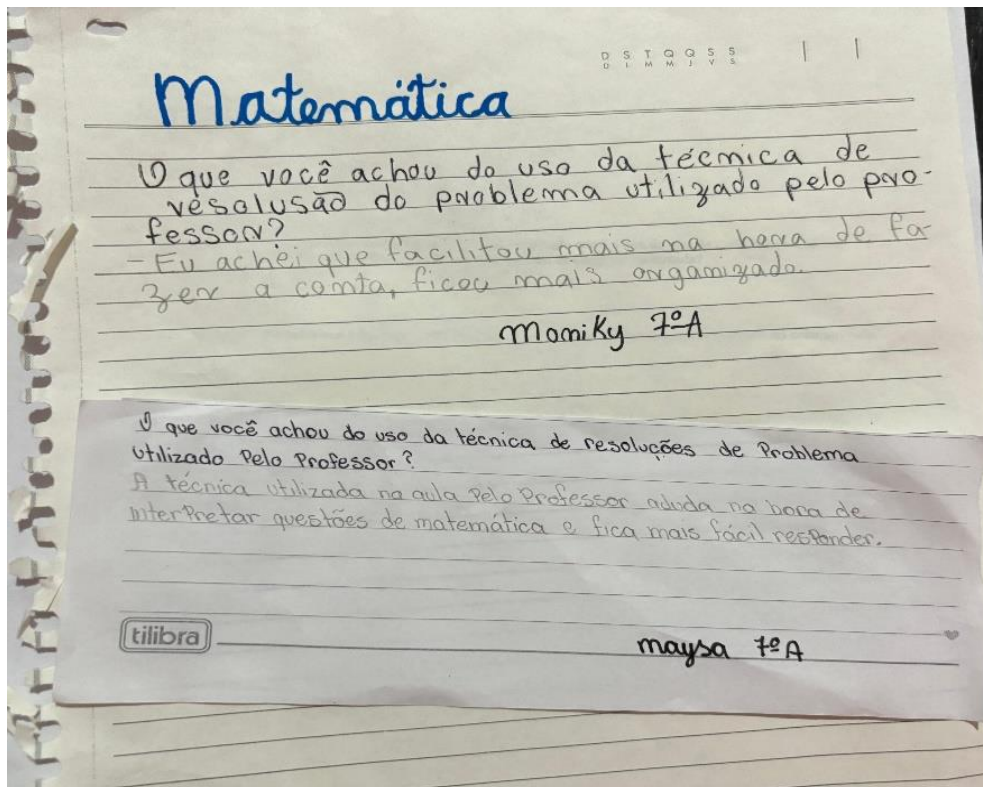 D S T Q Q S S
D L M M J V S
Matemática
O que você achou do uso da técnica de
resolusão do problema utilizado pelo pro-
fessor?
- Eu achei que facilitou mais na hora de fa
zer a conta, ficou mais organizado.
Moniky 7º A
O que você achou do uso da técnica de resoluções de Problema
utilizado Pelo Professor?
A técnica utilizada na aula Pelo Professor ajuda na hora de
interPretar questões de matemática e fica mais fácil resPonder.
tilibra
maysa 7º A